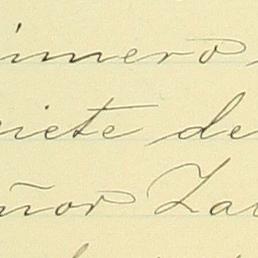 imero
iete de
ñor Za